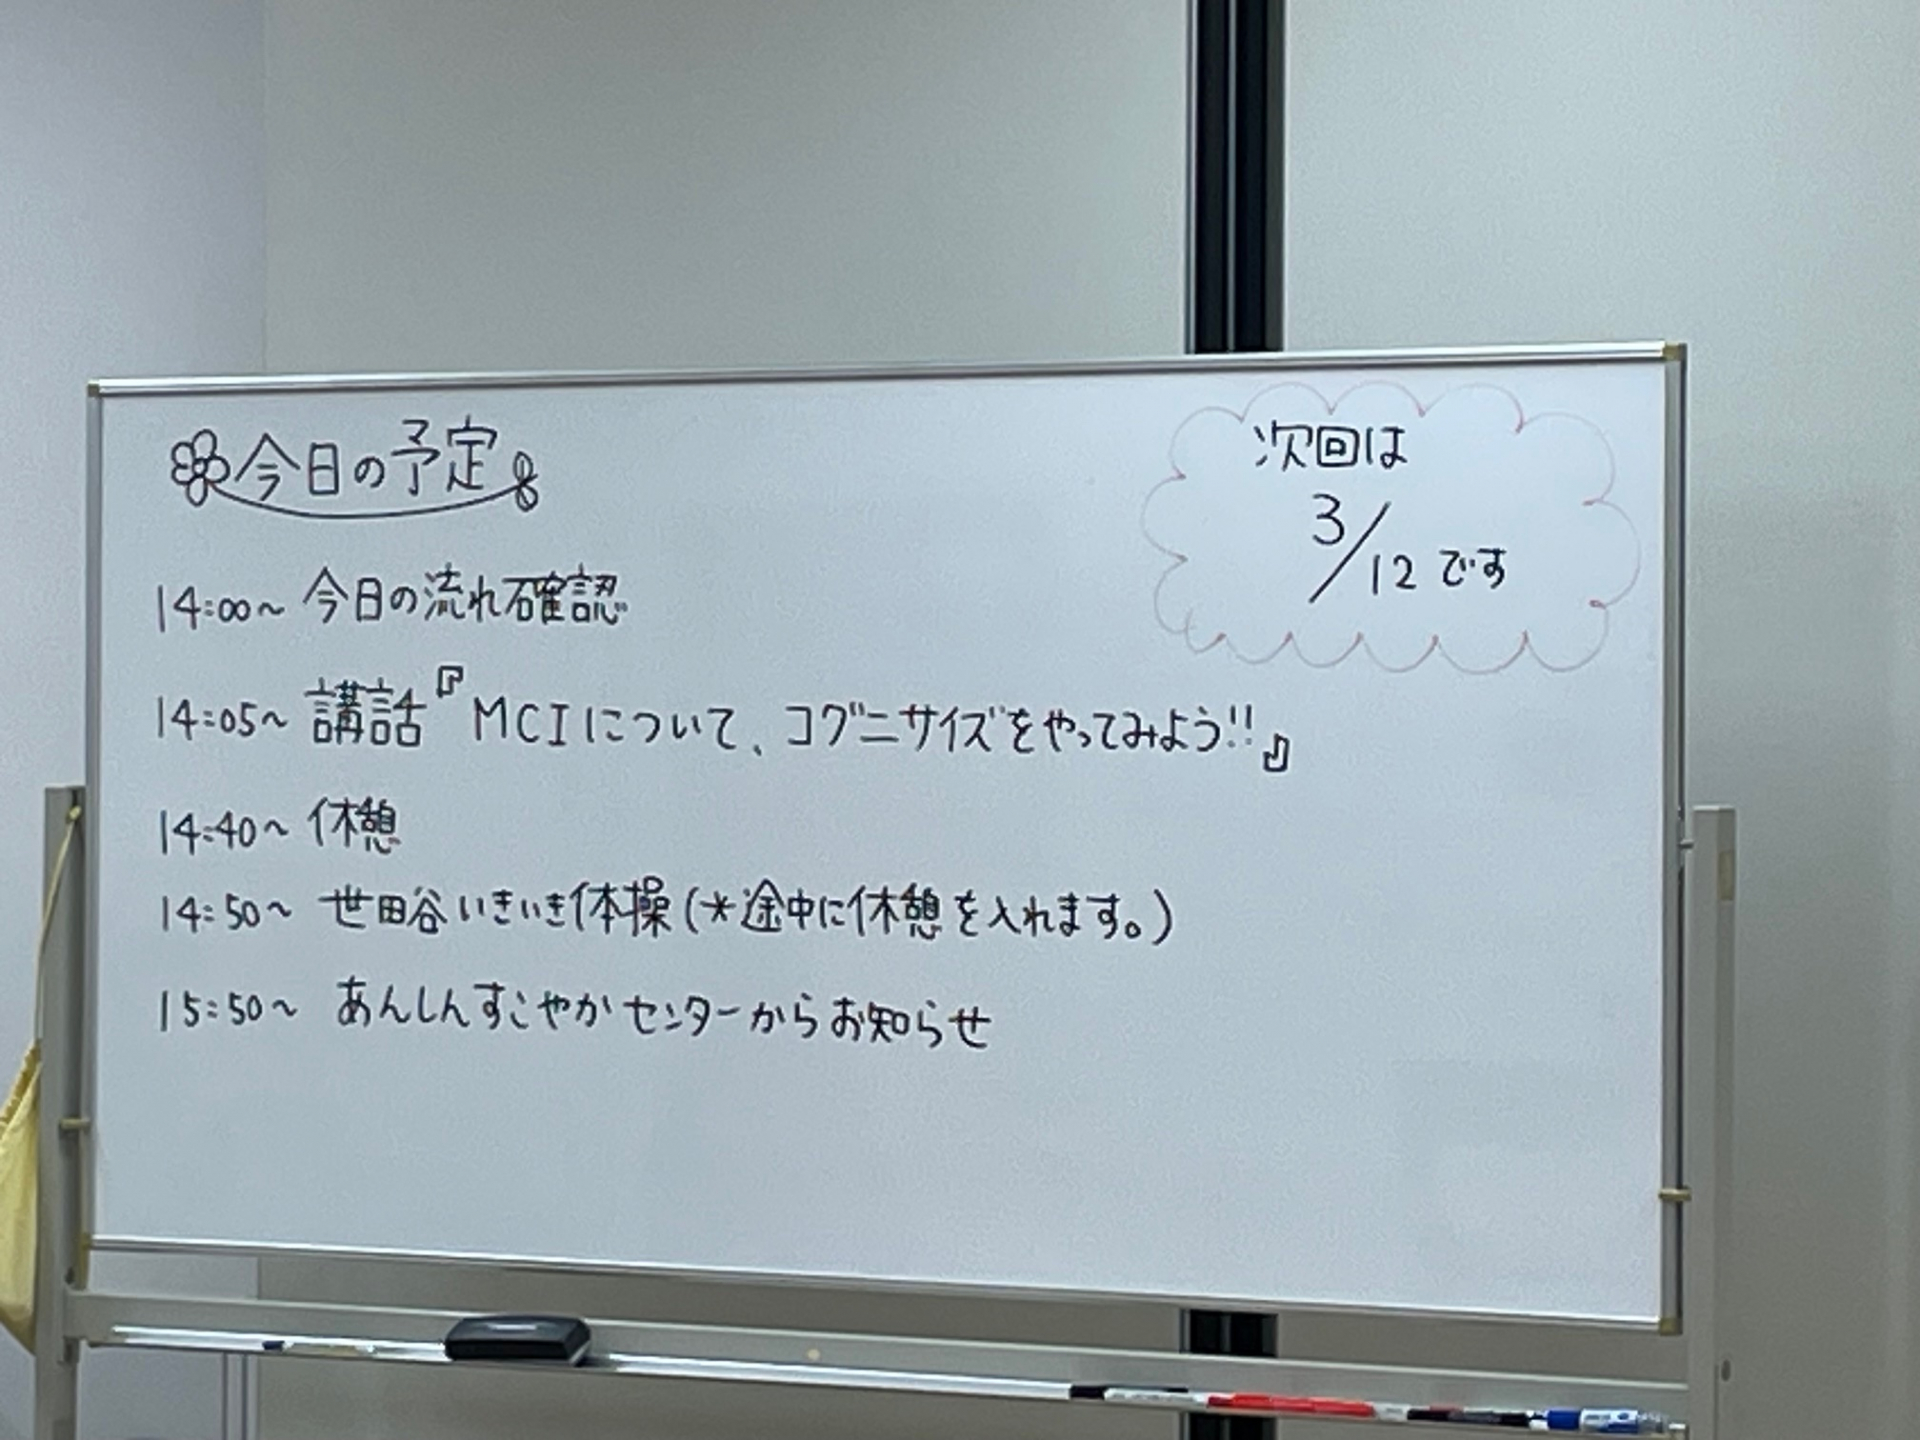 今日の予定
14:00～ 今日の流れ確認
14:05～ 講話『MCIについて、コグニサイズをやってみよう!!』
14:40～ 休憩
14:50～ 世田谷いきいき体操(*途中に休憩を入れます。)
15:50～ あんしんすこやかセンターからお知らせ
次回は
3/12です